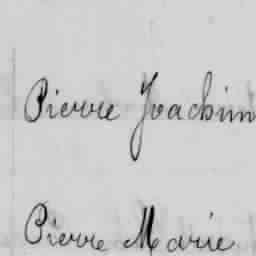 Pierre Joachim
Pierre Marie